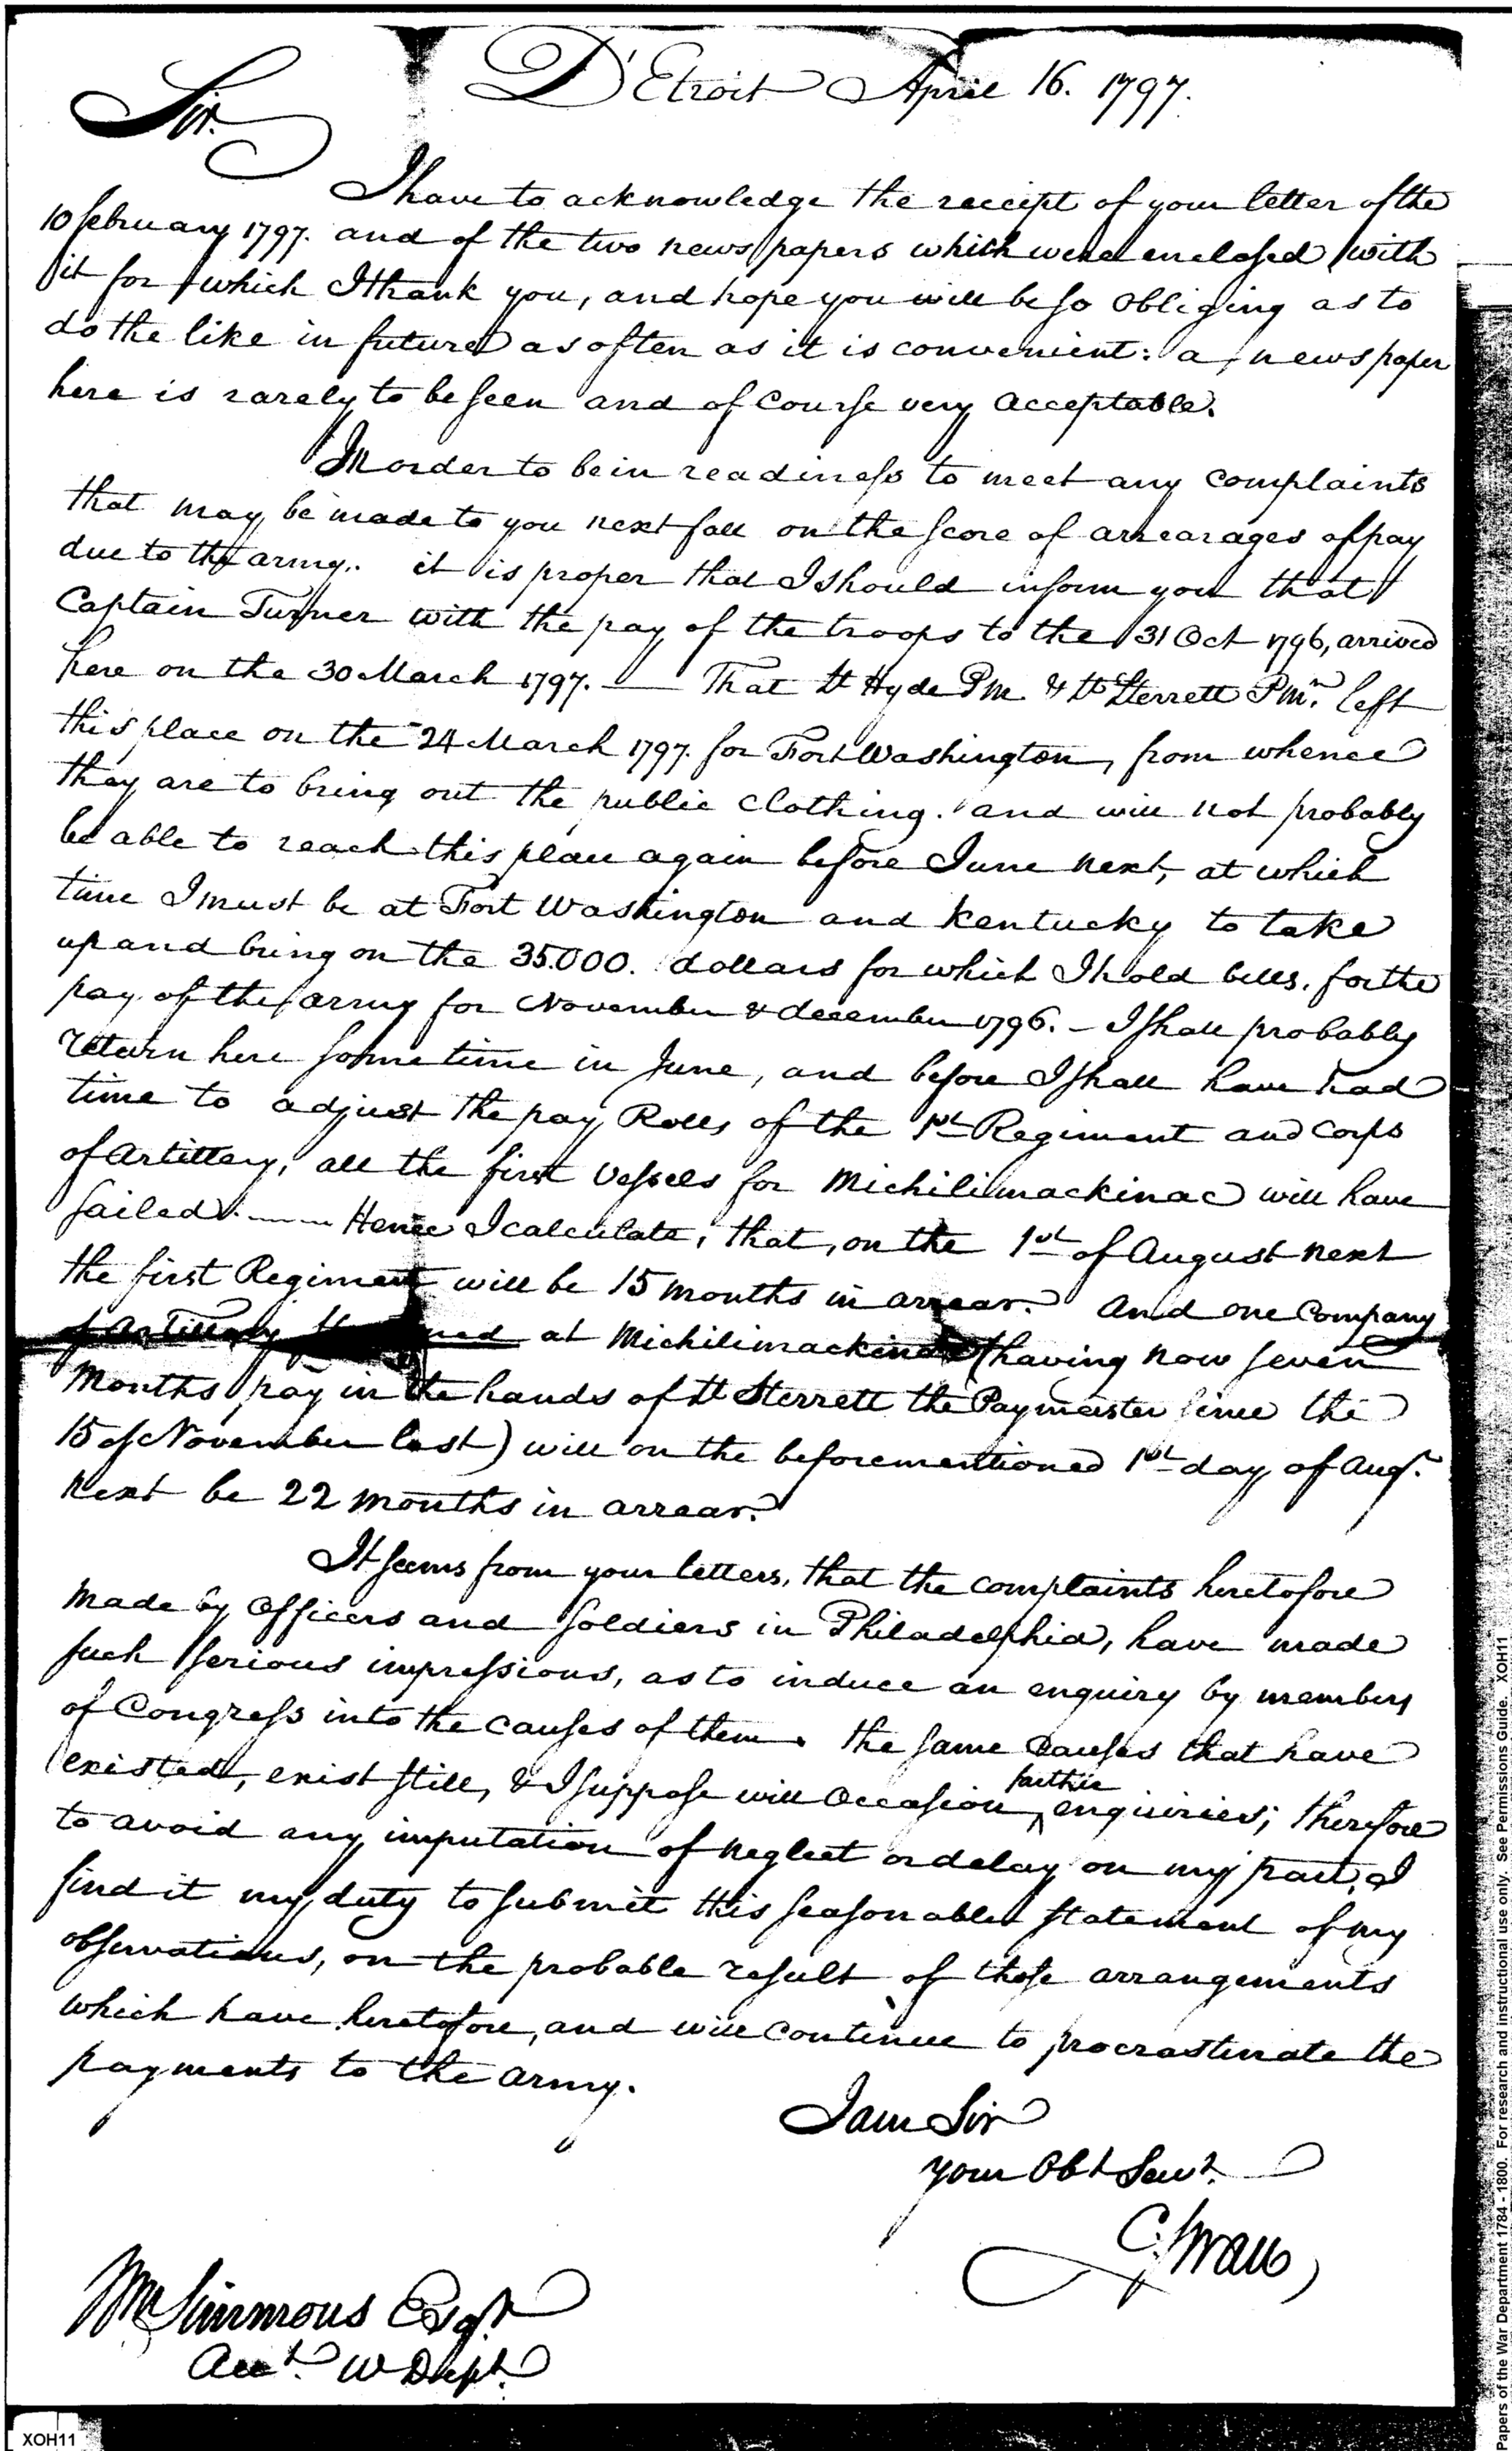 D'Etroit April 16. 1797.
Sir.
I have to acknowledge the receipt of your letter of the
10 february 1797. and of the two news papers which were enclosed with
it for which I thank you, and hope you will be so obliging as to
do the like in future as often as it is convenient: a news paper
here is rarely to be seen and of course very acceptable.
In order to be in readiness to meet any complaints
that may be made to you next fall on the score of arrearages of pay
due to the army. it is proper that I should inform you that
Captain Turner with the pay of the troops to the 31 Oct 1796, arrived
here on the 30 March 1797. — That Lt Hyde P.M. & Lt Sterrett P Mr. left
this place on the 24 March 1797. for Fort Washington, from whence
they are to bring out the public clothing. and will not probably
be able to reach this place again before June next, at which
time I must be at Fort Washington and Kentucky to take
up and bring on the 35.000. dollars for which I hold bills, for the
pay of the army for November & december 1796. - I shall probably
return here some time in June, and before I shall have had
time to adjust the pay Rolls of the 1st Regiment and Corps
of Artillery, all the first vessels for Michilimackinac will have
sailed. — Hence I calculate, that, on the 1st of August next
the first Regiment will be 15 months in arrear. And one Company
of Artillery at Michilimackinac (having now seven
Months pay in the hands of Lt Sterrett the Paymaster since the
15 of November last) will on the beforementioned 1st day of Augt.
next be 22 months in arrear.
It seems from your letters, that the complaints heretofore
made by Officers and Soldiers in Philadelphia, have made
such serious impressions, as to induce an enquiry by members
of Congress into the causes of them. the same Causes that have
existed, exist still, & I suppose will Occasion farther enquiries; therefore
to avoid any imputation of neglect or delay on my part, I
find it my duty to submit this seasonable statement of my
observations, on the probable result of those arrangements
which have heretofore, and will continue to procrastinate the
payments to the army.
I am Sir
your Obt Servt.
C. Swan
Wm Simmons Esqr.
Acct. W Dept.
XOH11
Papers of the War Department 1784 - 1800. For research and instructional use only. See Permissions Guide. XOH11